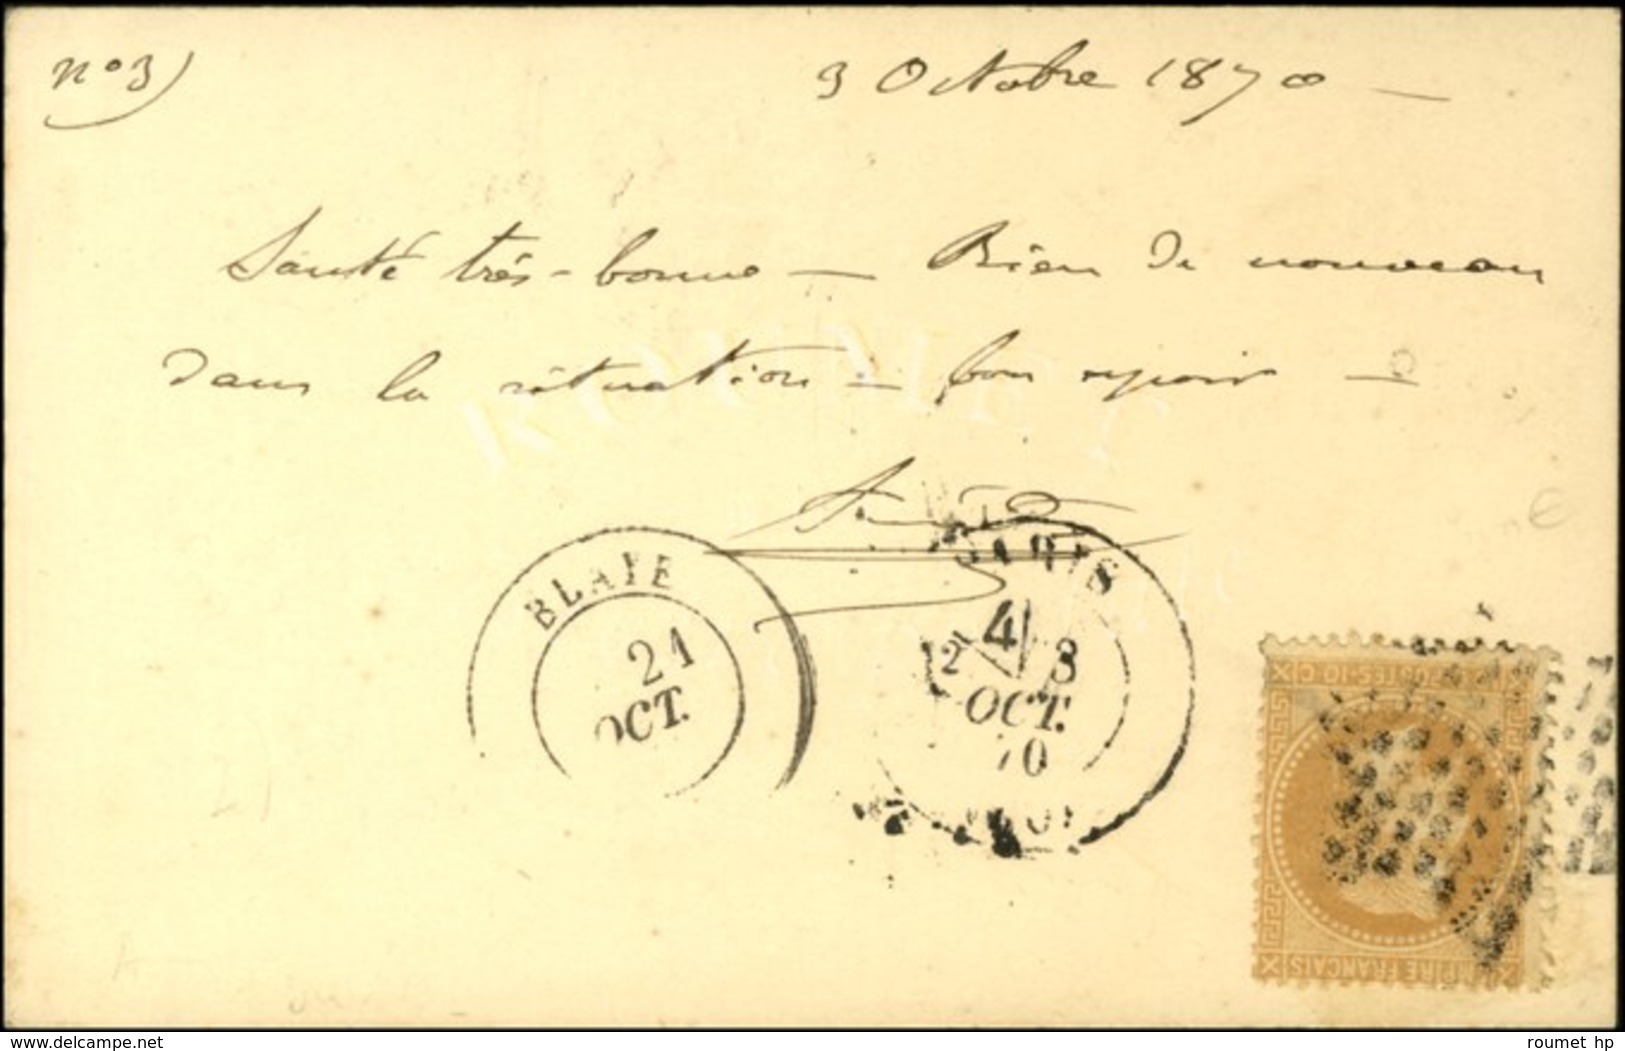 n°3)
3 Octobre 1870 —
Santé très-bonne — Rien de nouveau
dans la situation — bon espoir —
ROUMET
BLAYE
21
OCT.
PARIS
4
3
OCT.
70
POSTES 10 C
EMPIRE FRANÇAIS
www.delcampe.net
roumet hp